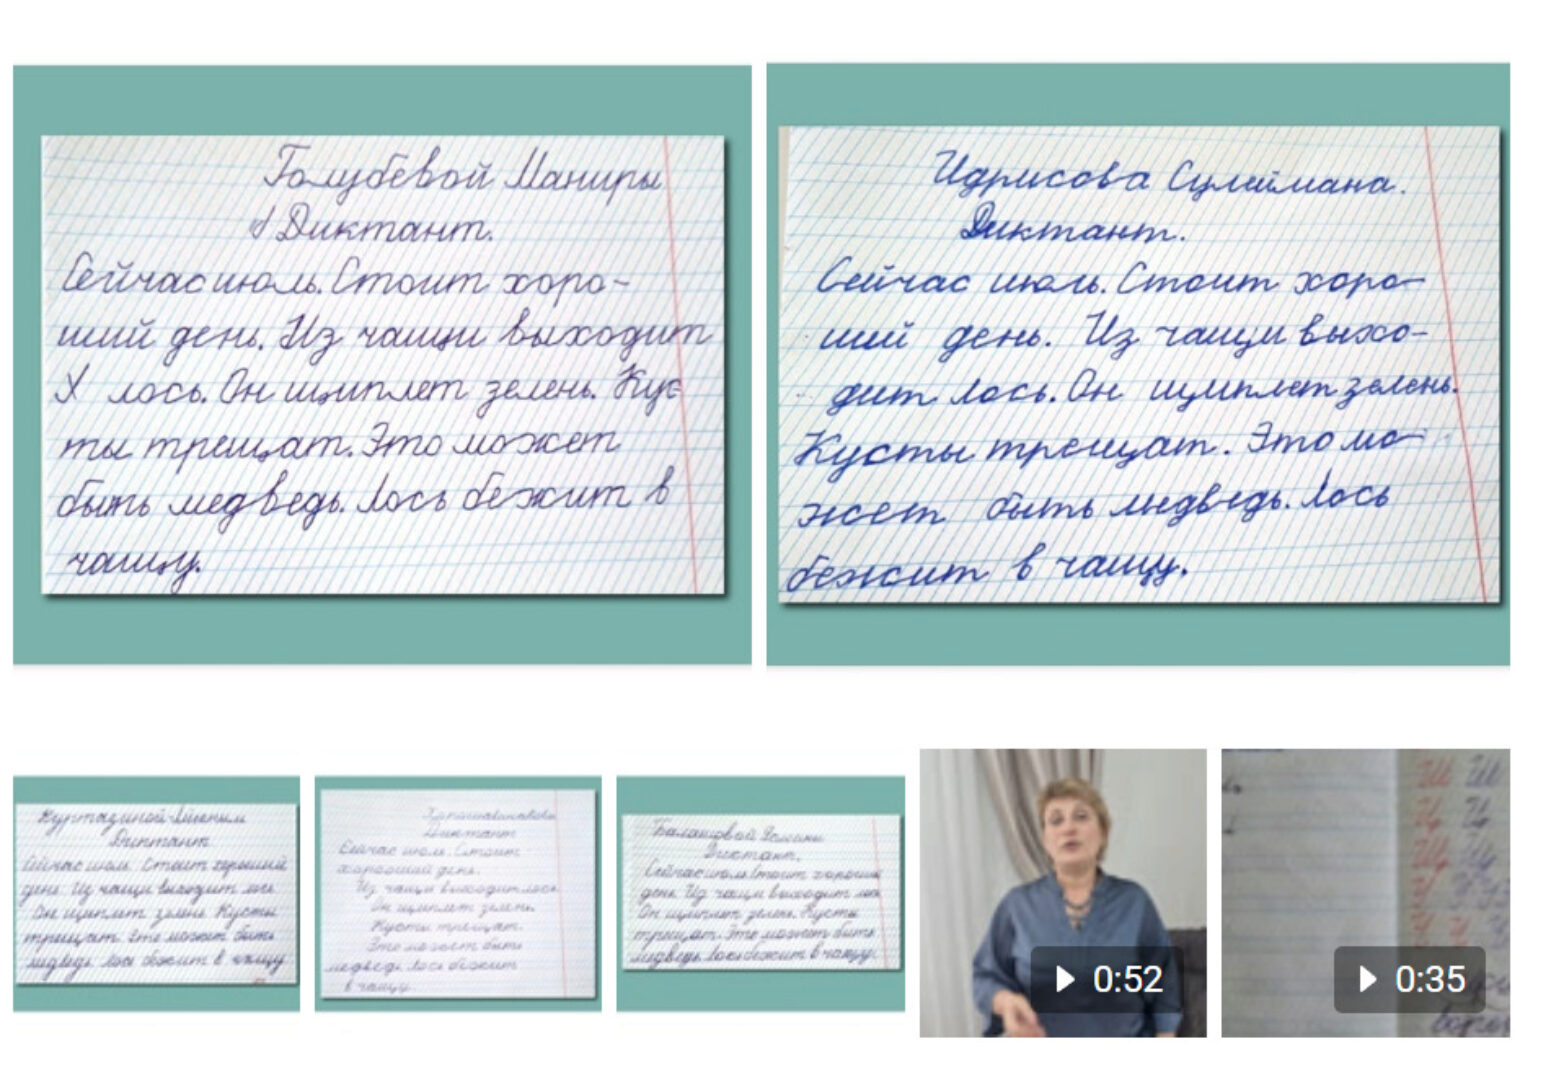 Голубевой Маниры
Диктант.
Сейчас июль. Стоит хоро-
ший день. Из чащи выходит
лось. Он щиплет зелень. Кус-
ты трещат. Это может
быть медведь. Лось бежит в
чащу.
Идрисова Сулеймана.
Диктант.
Сейчас июль. Стоит хоро-
ший день. Из чащи выхо-
дит лось. Он щиплет зелень.
Кусты трещат. Это мо-
жет быть медведь. Лось
бежит в чащу.
Диктант
Сейчас июль. Стоит хороший
день. Из чащи выходит лось.
Он щиплет зелень. Кусты
трещат. Это может быть
медведь. Лось бежит в чащу
Диктант
Сейчас июль. Стоит
хороший день.
Из чащи выходит лось.
Он щиплет зелень.
Кусты трещат.
Это может быть
медведь. Лось бежит
в чащу
Диктант.
Сейчас июль. Стоит хороший
день. Из чащи выходит лось
Он щиплет зелень. Кусты
трещат. Это может быть
медведь. Лось бежит в чащу.
0:52
0:35